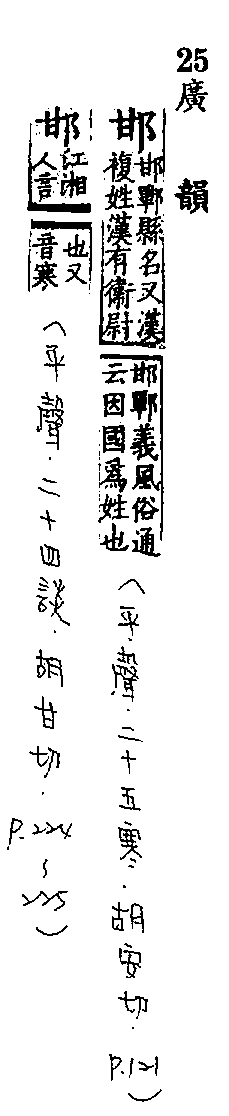 25 廣韻
邯 邯鄲縣名又漢
複姓漢有衛尉
邯鄲義風俗通
云因國爲姓也
(平聲.二十五寒.胡安切.P.121)
邯 江湘
人言
也又
音寒
(平聲.二十四談.胡甘切.P.224~225)